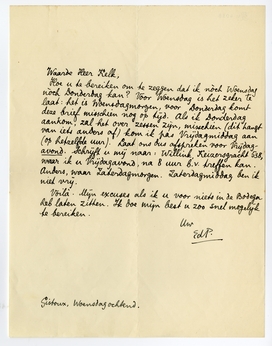 Waarde Heer Kelk,
Hoe u te bereiken om te zeggen dat ik nòch Woensdag
nòch Donderdag kan? Voor Woensdag is het zeker te
laat: het is Woensdagmorgen, voor Donderdag komt
deze brief misschien nog op tijd. Als ik Donderdag
aankom, zal het over zessen zijn, misschien (dit hangt
van iets anders af) kom ik pas Vrijdagmiddag aan
(op hetzelfde uur). Laat ons dus afspreken voor Vrijdag-
avond. Schrijft u mij naar: Willink, Keizersgracht 638,
waar ik u Vrijdagavond, na 8 uur b.v. treffen kan.
Anders, waar Zaterdagmorgen. Zaterdagmiddag ben ik
niet vrij.
Voilà. Mijn excuses als ik u voor niets in de Bodega
heb laten zitten. Ik doe mijn best u zoo snel mogelijk
te bereiken.
Uw
EdP.
Gistoux, Woensdagochtend.